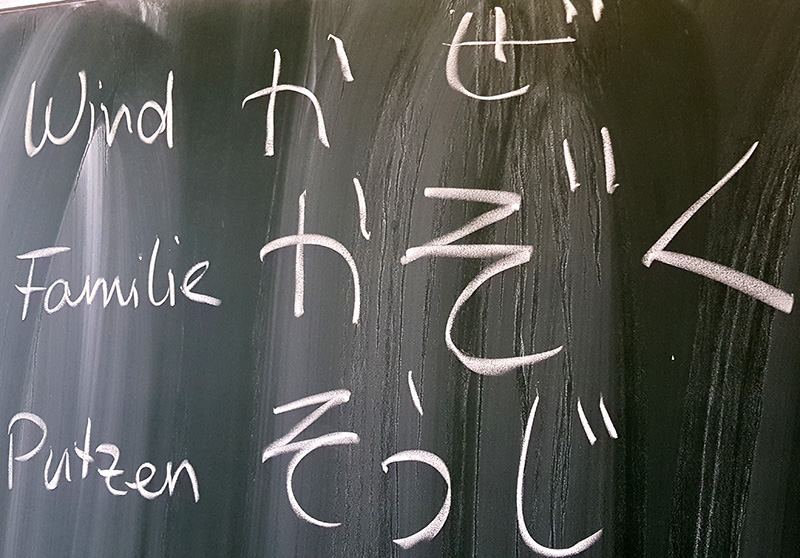 Wind かぜ
Familie かぞく
Putzen そうじ